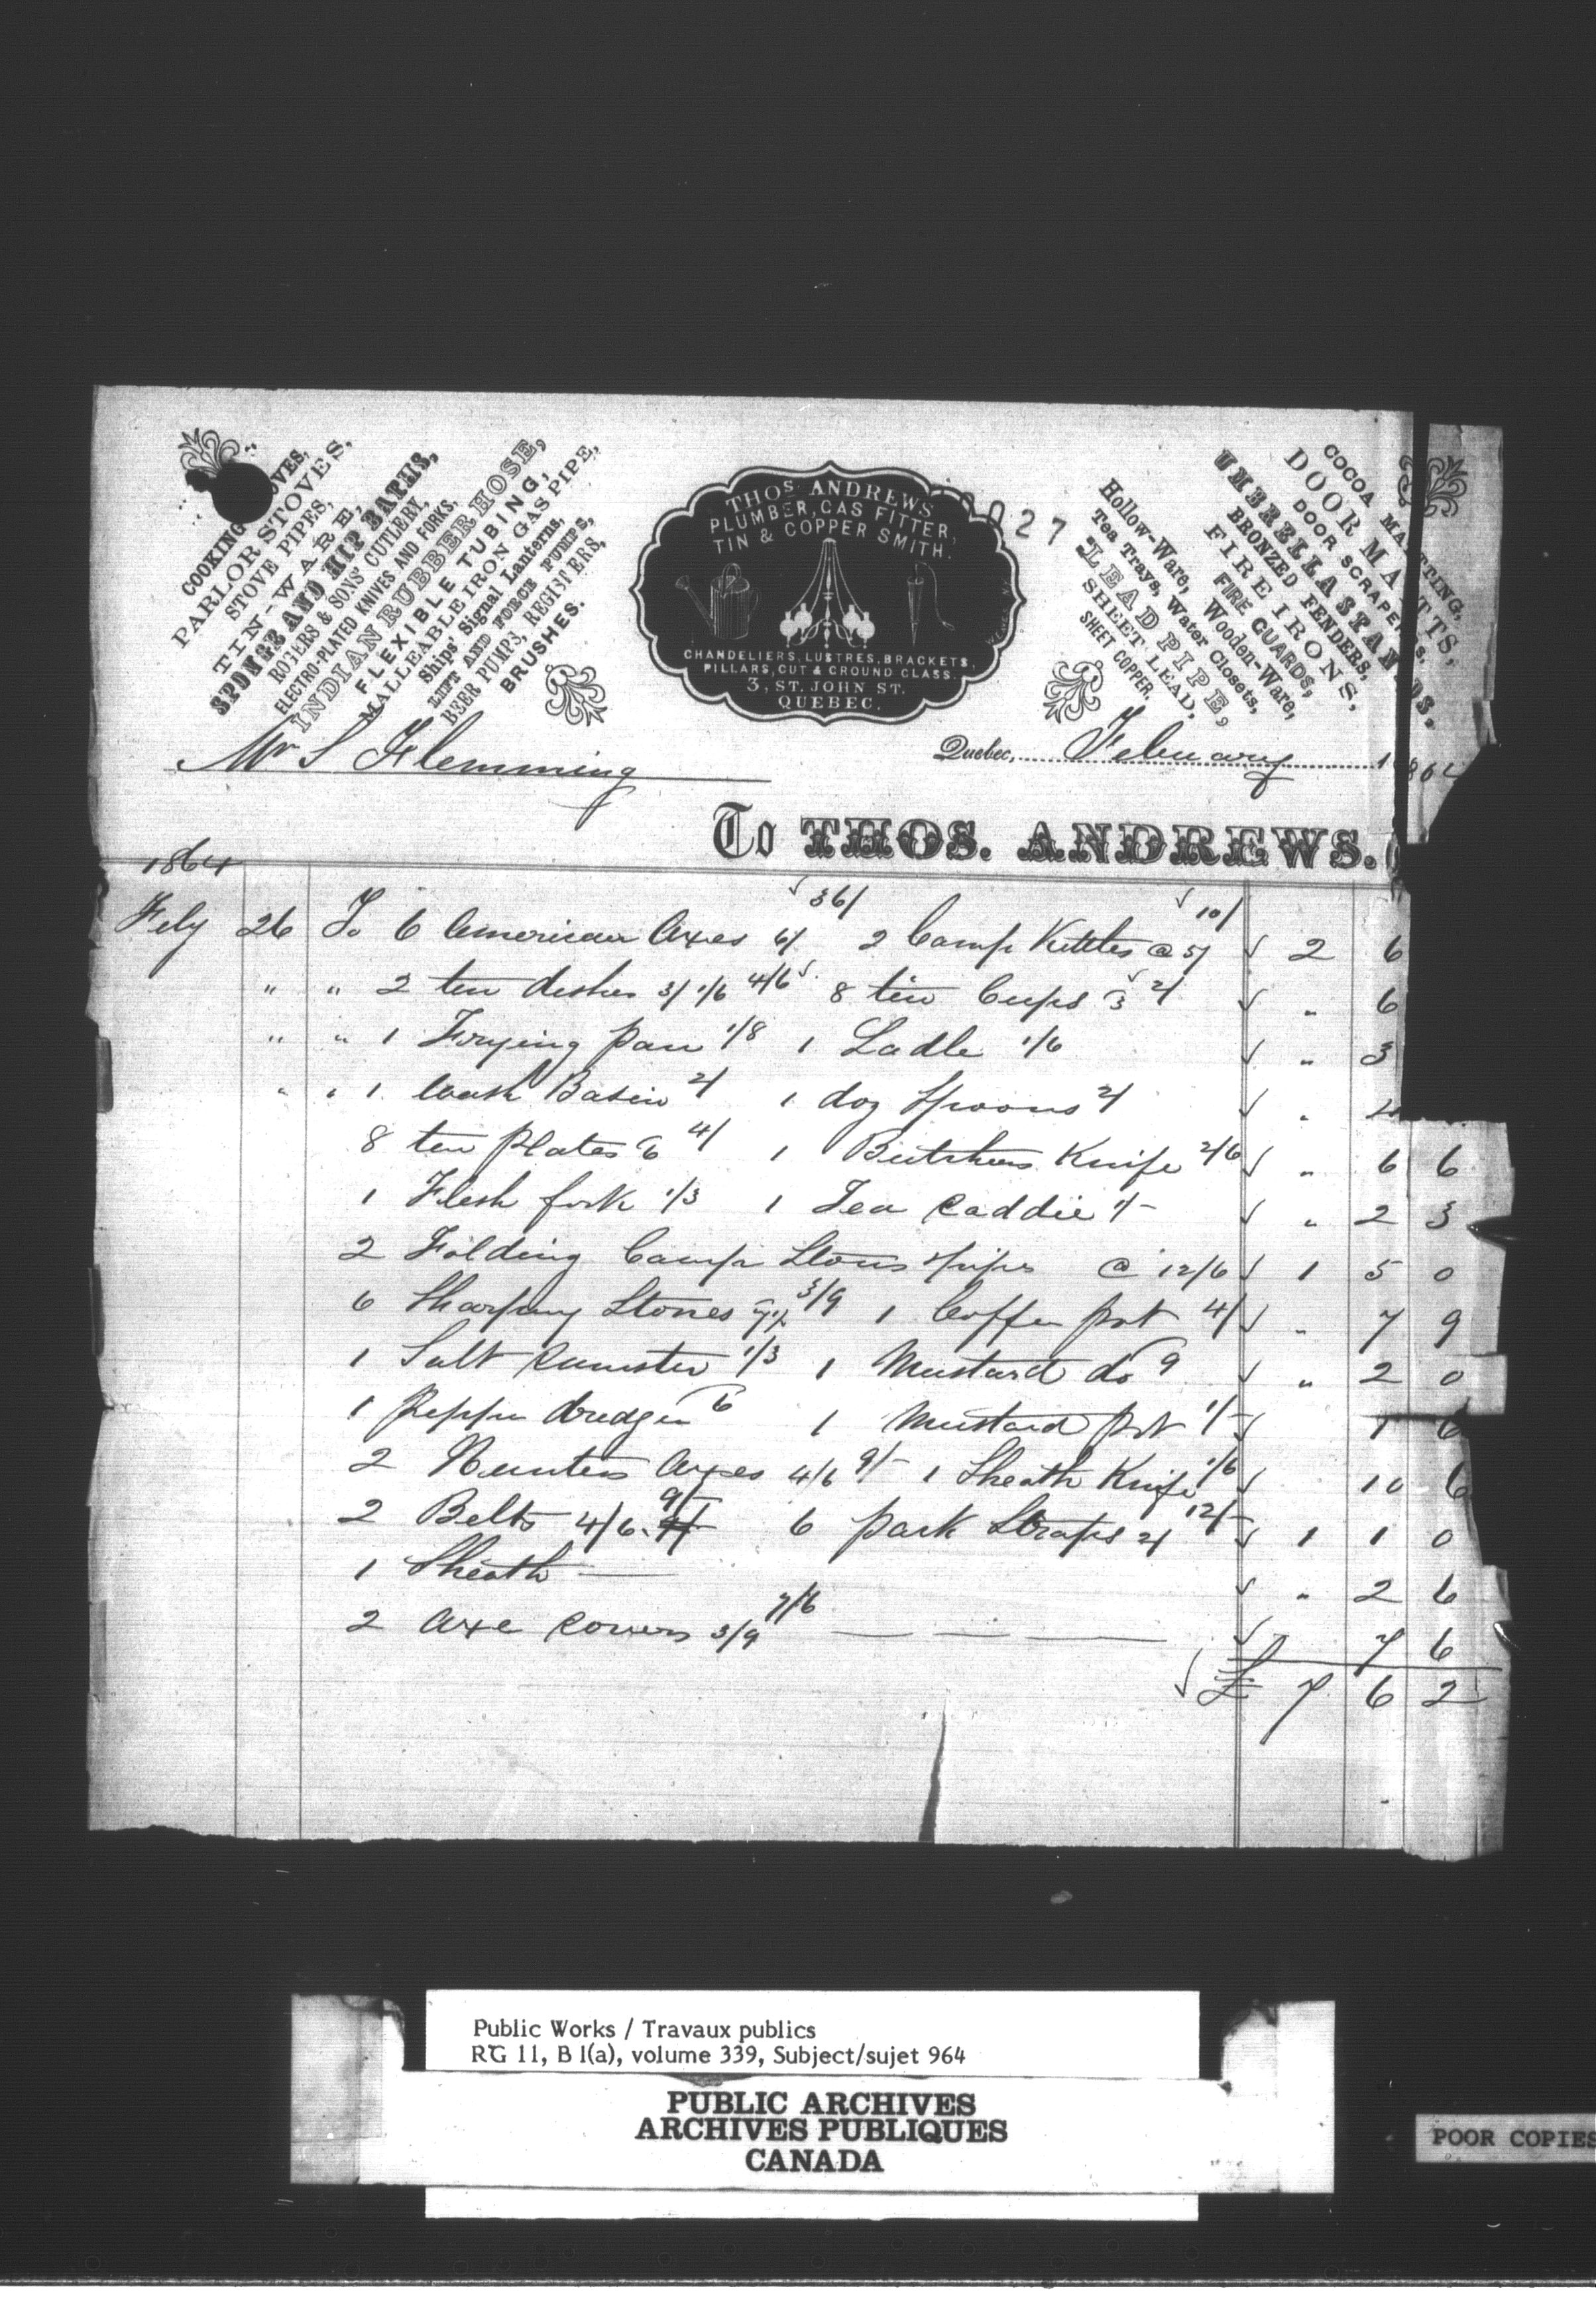 COOKING OVES,
PARLOR STOVES,
STOVE PIPES,
TIN-WARE,
SPONGE AND HIP BATHS,
ROGERS & SONS' CUTLERY,
ELECTRO-PLATED KNIVES AND FORKS,
INDIAN RUBBER HOSE,
FLEXIBLE TUBING,
MALLEABLE IRON GAS PIPE,
Ships' Signal Lanterns,
LIFT AND FORCE PUMPS,
BEER PUMPS, REGISTERS,
BRUSHES.
THOS ANDREWS
PLUMBER, GAS FITTER,
TIN & COPPER SMITH.
CHANDELIERS, LUSTRES, BRACKETS,
PILLARS, CUT & GROUND GLASS.
3, ST. JOHN ST.
QUEBEC.
27
COCOA MATTING,
DOOR MATTS,
DOOR SCRAPERS,
UMBRELLA STANDS.
BRONZED FENDERS,
FIRE IRONS,
FIRE GUARDS,
Hollow-Ware, Wooden-Ware,
Tea Trays, Water Closets,
LEAD PIPE,
SHEET LEAD,
SHEET COPPER.
Mr S Flemming
Quebec, February 1864
To THOS. ANDREWS.
1864
Feby 26 To 6 American Axes 6/ 36/ 2 Camp Kettles @ 5/ 10/ 2 6
" " 2 tin dishes 3/ 1/6 4/6 8 tin Cups 3 2/ " 6
" " 1 Frying pan 1/8 1 Ladle 1/6 " 3
" " 1 Wash Basin 2/ 1 doz Spoons 2/ " 4
8 tin Plates 6 4/ 1 Butchers Knife 2/6 " 6 6
1 Flesh fork 1/3 1 Tea Caddie 1/- " 2 3
2 Folding Camp Stous pipes @ 12/6 1 5 0
6 Sharping Stones 7½ 3/9 1 Coffee pot 4/ " 7 9
1 Salt Cannister 1/3 1 Mustard do 9 " 2 0
1 Pepper dredger 6 1 Mustard Pot 1/- 1 6
2 Hunters Axes 4/6 9/- 1 Sheath Knife 1/6 10 6
2 Belts 4/6 9/- 6 pack Straps 2/ 12/- 1 1 0
1 Sheath — " 2 6
2 Axe Covers 3/9 7/6 — — — 7 6
£ 7 6 2
Public Works / Travaux publics
RG 11, B 1(a), volume 339, Subject/sujet 964
PUBLIC ARCHIVES
ARCHIVES PUBLIQUES
CANADA
POOR COPIES